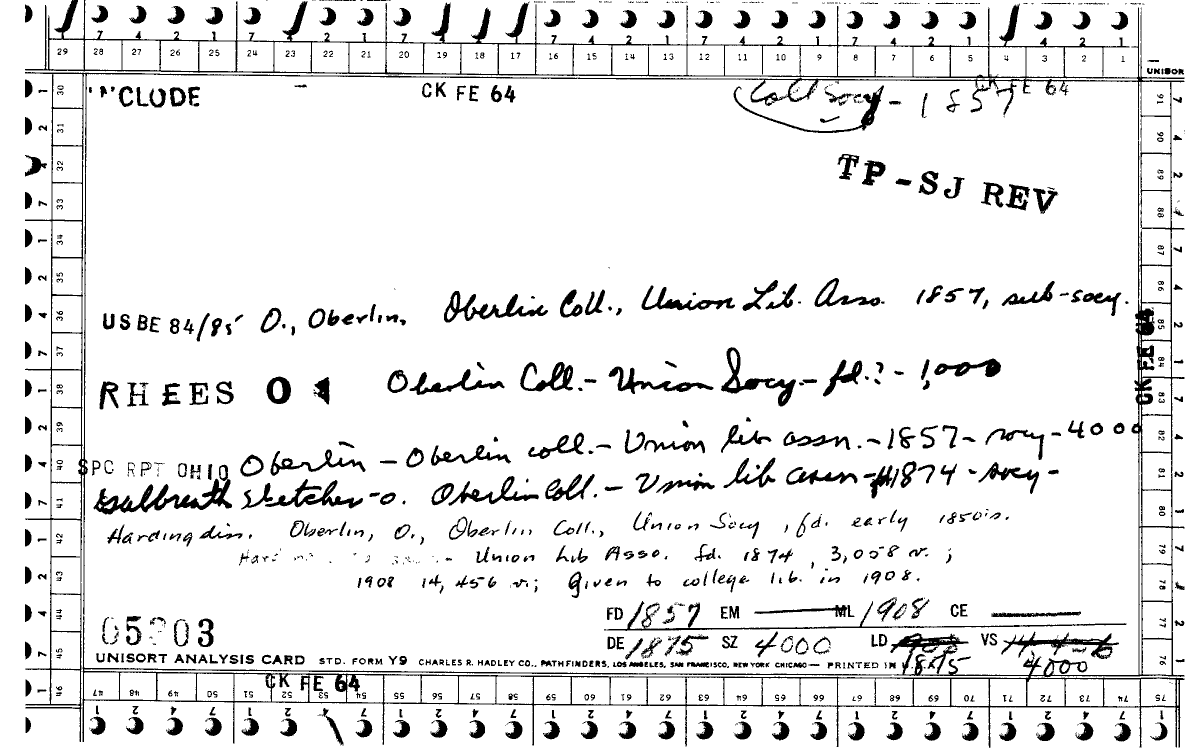 7 4 2 1 7 4 2 1 7 4 2 1 7 4 2 1 7 4 2 1 7 4 2 1 7 4 2 1
29 28 27 26 25 24 23 22 21 20 19 18 17 16 15 14 13 12 11 10 9 8 7 6 5 4 3 2 1
UNISOR
CLUDE CK FE 64 Coll Socy - 1857 CK FE 64
TP-SJ REV
USBE 84/85 O., Oberlin, Oberlin Coll., Union Lib. Asso. 1857, sub-socy.
RHEES O Oberlin Coll. - Union Socy - fd.? - 1,000
CK FE 64
SPC RPT OHIO Oberlin - Oberlin coll. - Union lib assn. - 1857 - socy - 4000
Galbreath sketches - O. Oberlin Coll. - Union lib assn - 1874 - socy -
Harding diss. Oberlin, O., Oberlin Coll., Union Socy, fd. early 1850's.
Union Lib Asso. fd. 1874, 3,058 v.;
1908 14,456 v.; given to college lib. in 1908.
FD 1857 EM ML 1908 CE
05203 DE 1875 SZ 4000 LD 1908 VS
UNISORT ANALYSIS CARD STD. FORM Y9 CHARLES R. HADLEY CO., PATHFINDERS, LOS ANGELES, SAN FRANCISCO, NEW YORK CHICAGO — PRINTED IN 1875 4000
CK FE 64
47 48 49 50 51 52 53 54 55 56 57 58 59 60 61 62 63 64 65 66 67 68 69 70 71 72 73 74 75